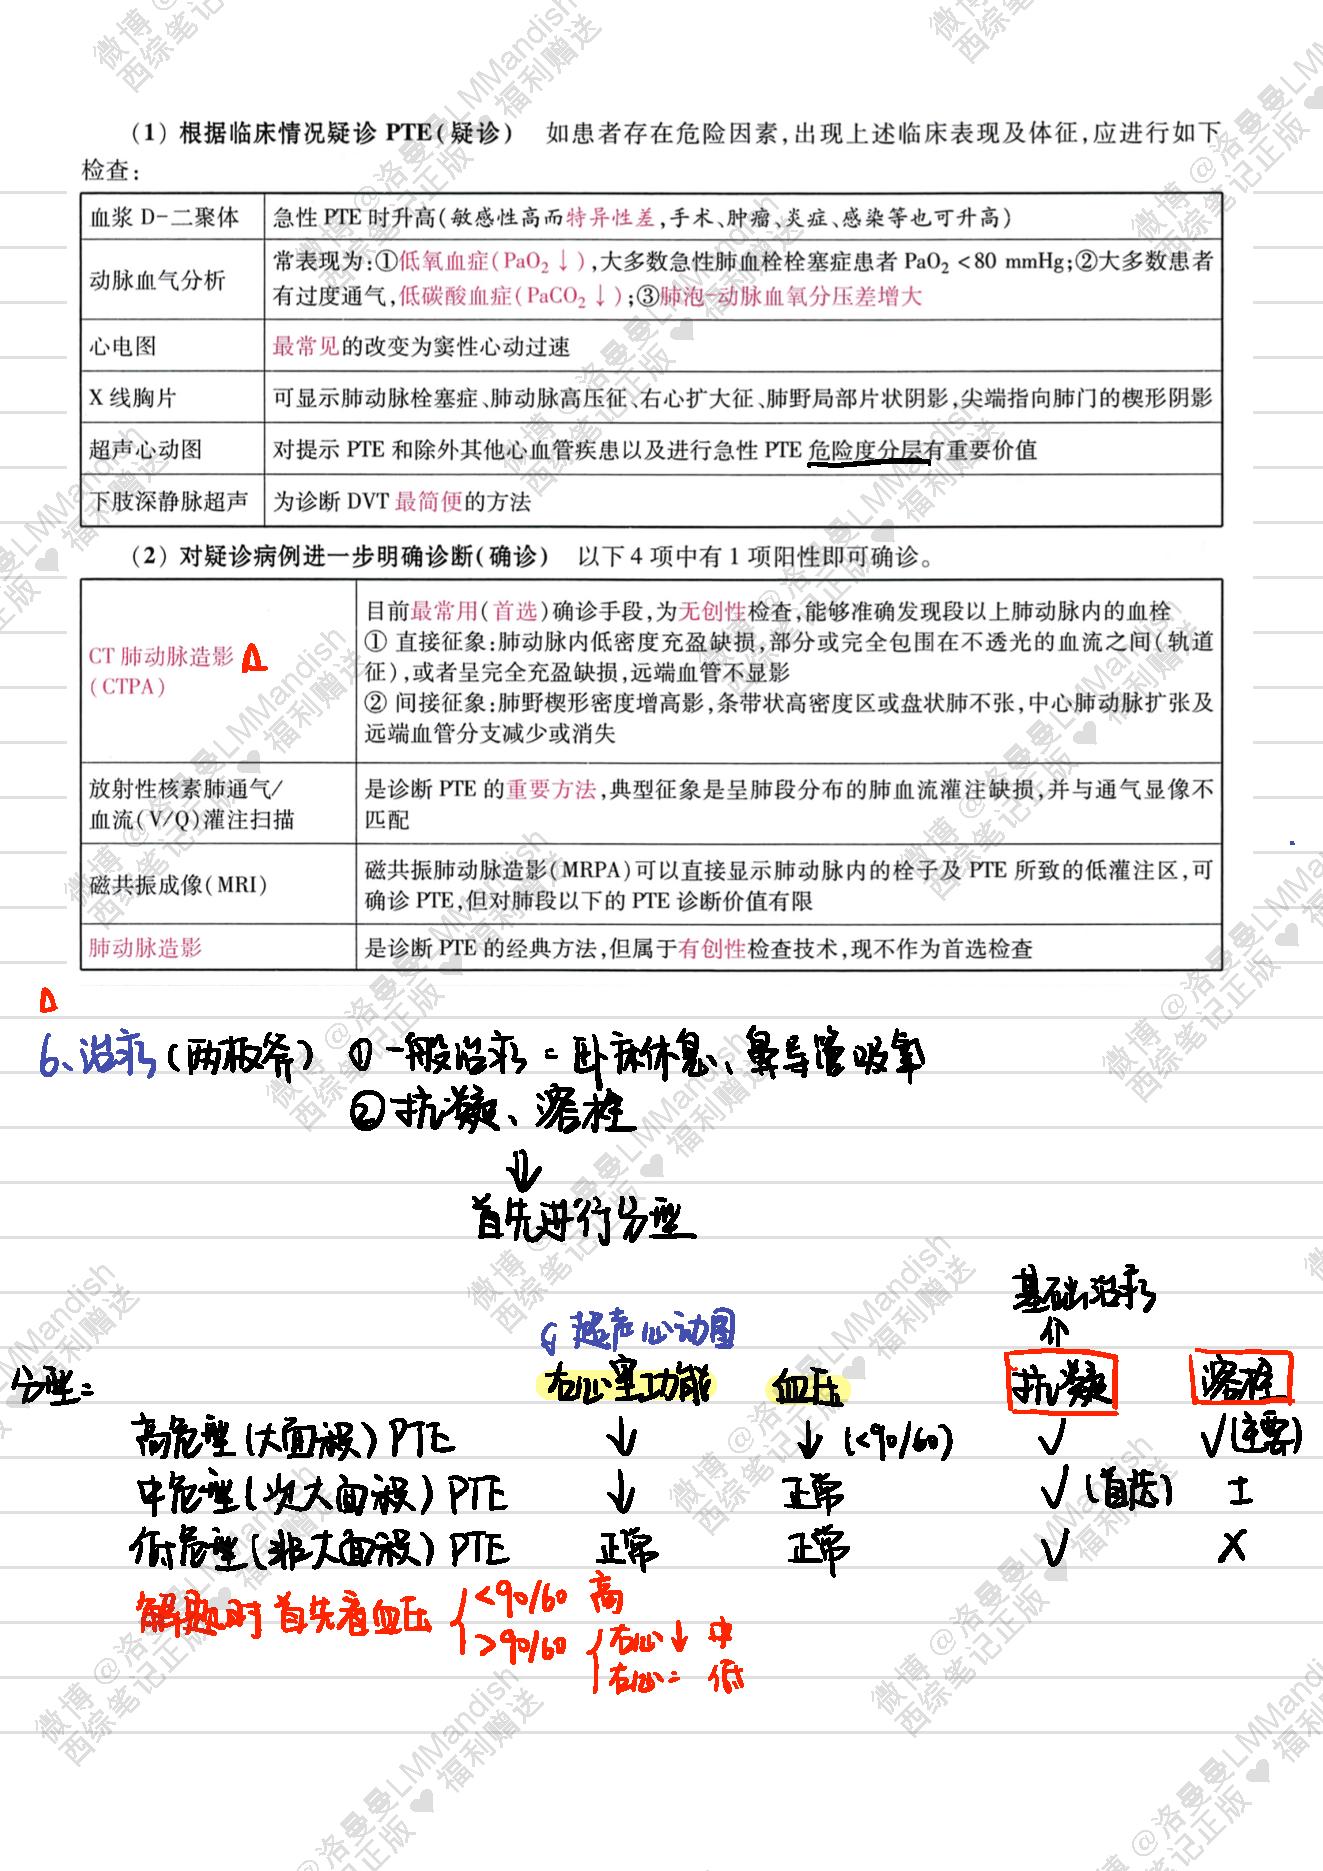 (1) 根据临床情况疑诊 PTE(疑诊) 如患者存在危险因素,出现上述临床表现及体征,应进行如下
检查:
血浆 D-二聚体 急性 PTE 时升高(敏感性高而特异性差,手术、肿瘤、炎症、感染等也可升高)
动脉血气分析 常表现为:①低氧血症(PaO₂↓),大多数急性肺血栓栓塞症患者 PaO₂<80 mmHg;②大多数患者
有过度通气,低碳酸血症(PaCO₂↓);③肺泡-动脉血氧分压差增大
心电图 最常见的改变为窦性心动过速
X 线胸片 可显示肺动脉栓塞症、肺动脉高压征、右心扩大征、肺野局部片状阴影,尖端指向肺门的楔形阴影
超声心动图 对提示 PTE 和除外其他心血管疾患以及进行急性 PTE 危险度分层有重要价值
下肢深静脉超声 为诊断 DVT 最简便的方法
(2) 对疑诊病例进一步明确诊断(确诊) 以下 4 项中有 1 项阳性即可确诊。
CT 肺动脉造影 Δ
(CTPA)
目前最常用(首选)确诊手段,为无创性检查,能够准确发现段以上肺动脉内的血栓
① 直接征象:肺动脉内低密度充盈缺损,部分或完全包围在不透光的血流之间(轨道
征),或者呈完全充盈缺损,远端血管不显影
② 间接征象:肺野楔形密度增高影,条带状高密度区或盘状肺不张,中心肺动脉扩张及
远端血管分支减少或消失
放射性核素肺通气/
血流(V/Q)灌注扫描
是诊断 PTE 的重要方法,典型征象是呈肺段分布的肺血流灌注缺损,并与通气显像不
匹配
磁共振成像(MRI)
磁共振肺动脉造影(MRPA)可以直接显示肺动脉内的栓子及 PTE 所致的低灌注区,可
确诊 PTE,但对肺段以下的 PTE 诊断价值有限
肺动脉造影 是诊断 PTE 的经典方法,但属于有创性检查技术,现不作为首选检查
Δ
6、治疗(两板斧) ① 一般治疗 = 卧床休息、鼻导管吸氧
② 抗凝、溶栓
⇓
首先进行分型
基础治疗
↑
超声心动图
分型= 右心室功能 血压 抗凝 溶栓
高危型(大面积)PTE ↓ ↓(<90/60) √ √(主要)
中危型(次大面积)PTE ↓ 正常 √(首选) ±
低危型(非大面积)PTE 正常 正常 √ X
解题时首先看血压 <90/60 高
>90/60 右心↓ 中
右心= 低
微博@洛曼曼LMMandish
西综笔记正版♥福利赠送